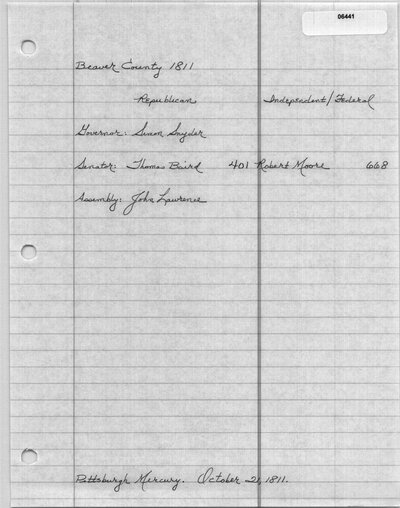 06441
Beaver County 1811
Republican Independent/Federal
Governor: Simon Snyder
Senator: Thomas Baird 401 Robert Moore 668
Assembly: John Lawrence
Pittsburgh Mercury. October 21, 1811.